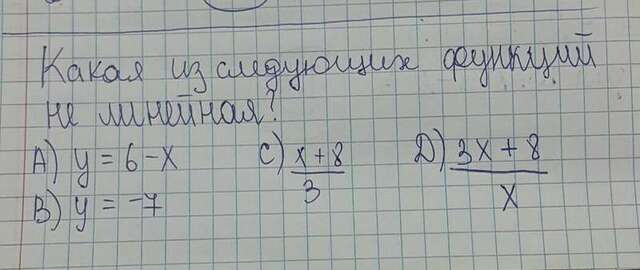 Какая из следующих функций
не линейная?
А) y = 6 - x С) x + 8 / 3 Д) 3x + 8 / x
В) y = -7